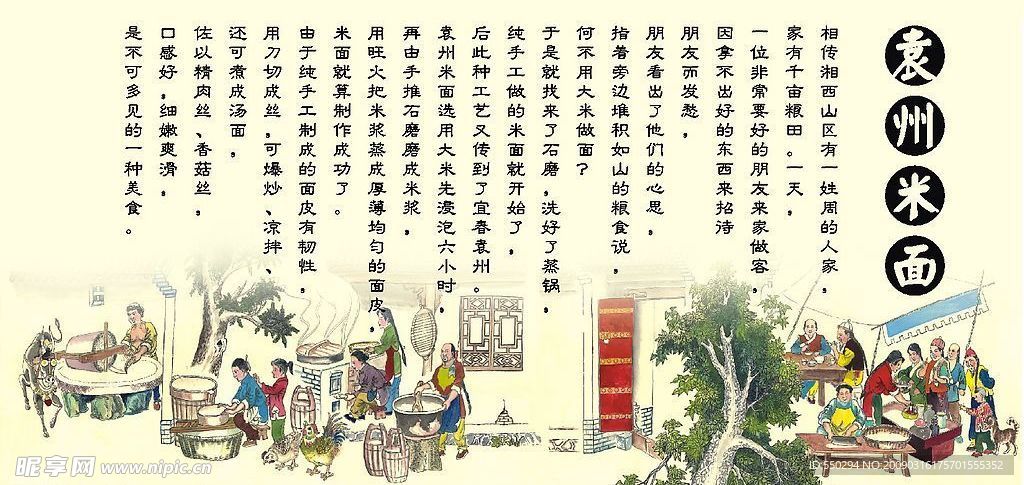 袁州米面
相传湘西山区有一姓周的人家，
家有千亩粮田。一天，
一位非常要好的朋友来家做客，
因拿不出好的东西来招待
朋友而发愁，
朋友看出了他们的心思，
指着旁边堆积如山的粮食说，
何不用大米做面？
于是就找来了石磨，洗好了蒸锅，
纯手工做的米面就开始了，
后此种工艺又传到了宜春袁州。
袁州米面选用大米先浸泡六小时，
再由手推石磨磨成米浆，
用旺火把米浆蒸成厚薄均匀的面皮，
米面就算制作成功了。
由于纯手工制成的面皮有韧性，
用刀切成丝，可爆炒、凉拌、
还可煮成汤面，
佐以精肉丝、香菇丝，
口感好，细嫩爽滑，
是不可多见的一种美食。
昵享网 www.nipic.cn
ID:550294 NO:20090316175701555352